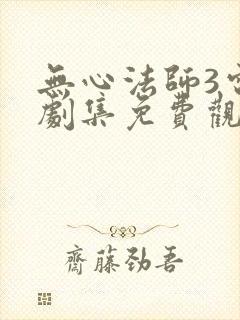 無心法師3
劇集免費觀
齋藤劲吾